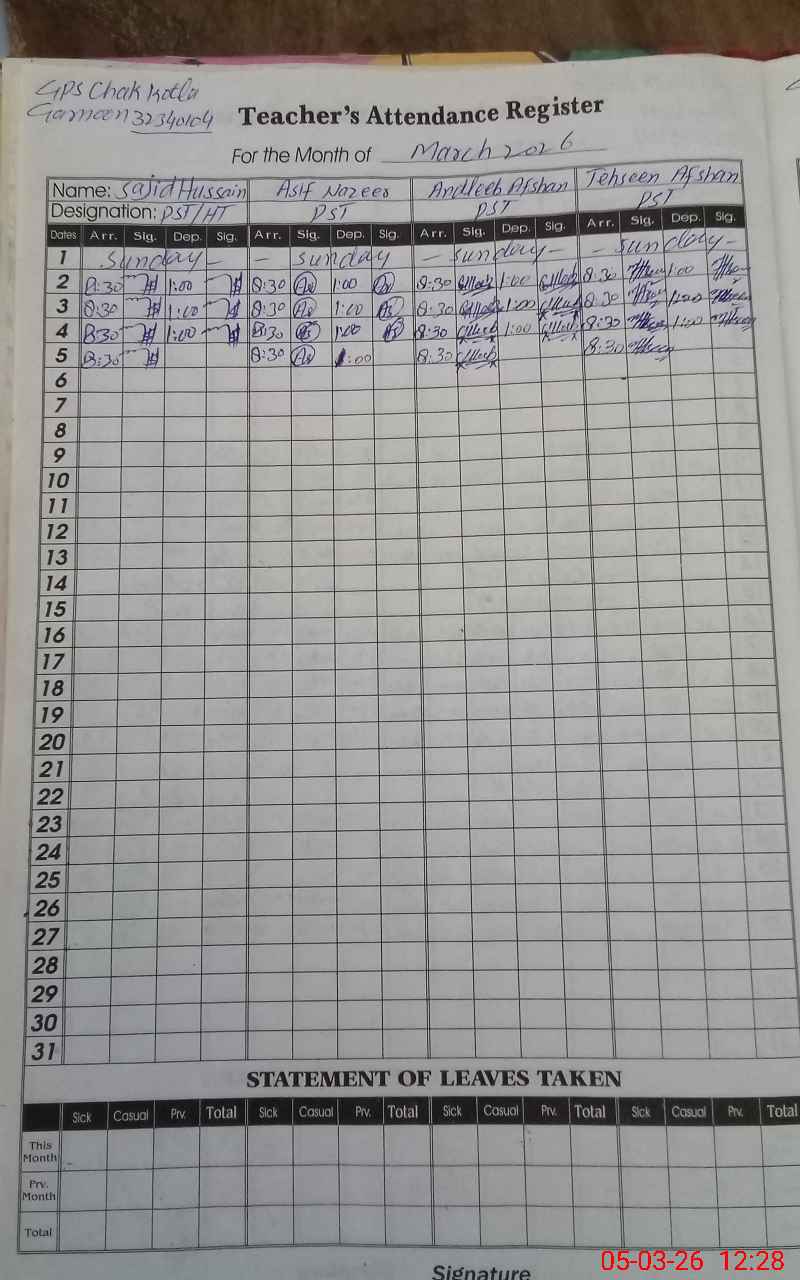 GPS Chak Kotla
Garmeen 32340104
Teacher's Attendance Register
For the Month of March 2026
Name: Sajid Hussain Asif Nazeer Andleeb Afshan Tehseen Afshan
Designation: PST/HT PST PST PST
Dates Arr. Sig. Dep. Sig. Arr. Sig. Dep. Sig. Arr. Sig. Dep. Sig. Arr. Sig. Dep. Sig.
1 - Sunday - - Sunday - Sunday - - Sunday -
2 8:30 1:00 8:30 1:00 8:30 1:00 8:30 1:00
3 8:30 1:00 8:30 1:00 8:30 1:00 8:30 1:00
4 8:30 1:00 8:30 1:00 8:30 1:00 8:30 1:00
5 8:30 8:30 1:00 8:30 8:30
6
7
8
9
10
11
12
13
14
15
16
17
18
19
20
21
22
23
24
25
26
27
28
29
30
31
STATEMENT OF LEAVES TAKEN
Sick Casual Prv. Total Sick Casual Prv. Total Sick Casual Prv. Total Sick Casual Prv. Total
This
Month
Prv.
Month
Total
Signature
05-03-26 12:28